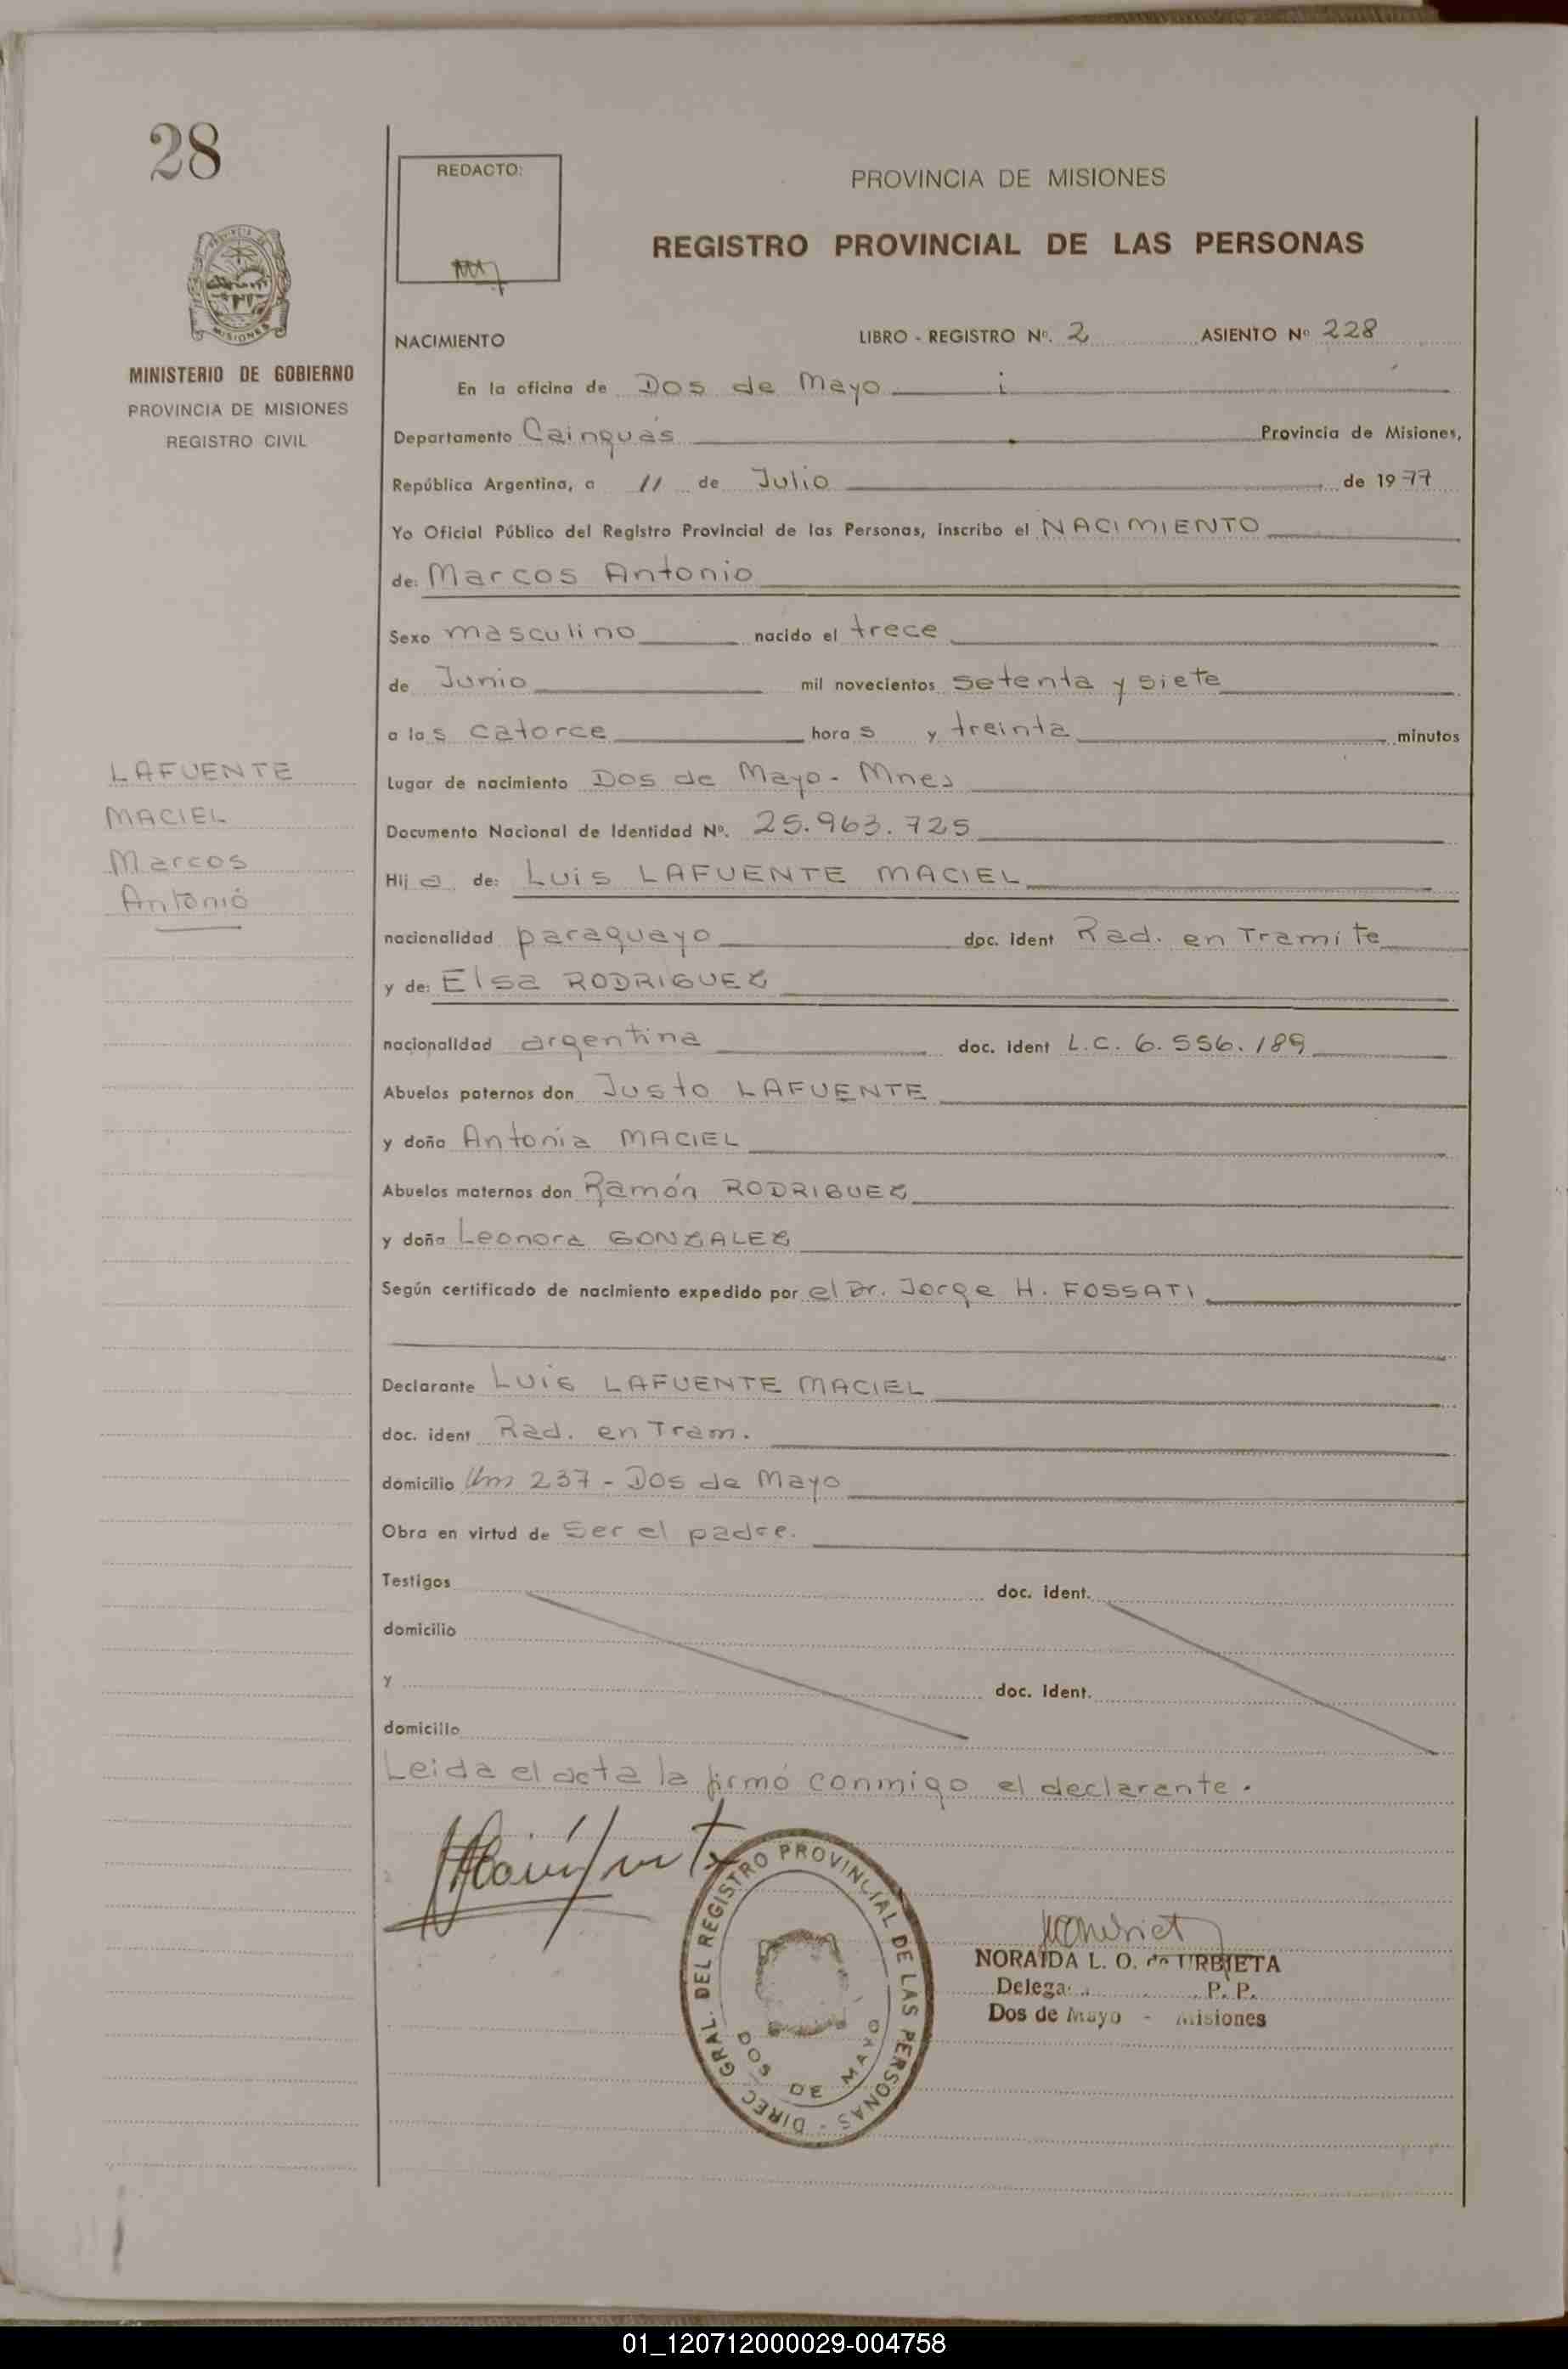 28
REDACTO:
PROVINCIA DE MISIONES
REGISTRO PROVINCIAL DE LAS PERSONAS
MISIONES
MINISTERIO DE GOBIERNO
PROVINCIA DE MISIONES
REGISTRO CIVIL
NACIMIENTO LIBRO - REGISTRO Nº. 2 ASIENTO Nº 228
En la oficina de Dos de Mayo
Departamento Cainguás Provincia de Misiones,
República Argentina, a 11 de Julio de 1977
Yo Oficial Público del Registro Provincial de las Personas, inscribo el NACIMIENTO
de: Marcos Antonio
Sexo masculino nacido el trece
de Junio mil novecientos setenta y siete
a las catorce horas y treinta minutos
LAFUENTE
MACIEL
Marcos
Antonio
Lugar de nacimiento Dos de Mayo - Mnes
Documento Nacional de Identidad Nº. 25.963.725
Hijo de: Luis LAFUENTE MACIEL
nacionalidad paraguayo doc. ident Rad. en Tramite
y de: Elsa RODRIGUEZ
nacionalidad argentina doc. ident L.C. 6.556.189
Abuelos paternos don Justo LAFUENTE
y doña Antonia MACIEL
Abuelos maternos don Ramón RODRIGUEZ
y doña Leonora GONZALEZ
Según certificado de nacimiento expedido por el Dr. Jorge H. FOSSATI
Declarante Luis LAFUENTE MACIEL
doc. ident Rad. en Tram.
domicilio Km 237 - Dos de Mayo
Obra en virtud de ser el padre.
Testigos doc. ident.
domicilio
y doc. ident.
domicilio
Leida el acta la firmó conmigo el declarante.
DIREC. GRAL. DEL REGISTRO PROVINCIAL DE LAS PERSONAS -
DOS DE MAYO
NORAIDA L. O. de URBIETA
Delega P. P.
Dos de Mayo - Misiones
01_120712000029-004758